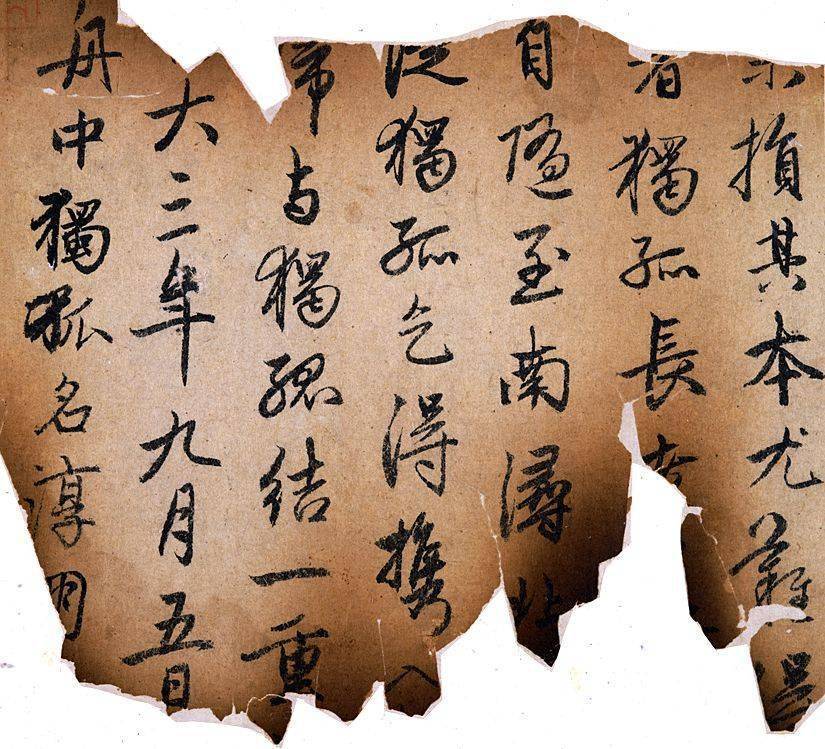 損其本尤難得
者獨孤長
自隨至南潯北
從獨孤乞得攜入
與獨孤結一重
大三年九月五日
舟中獨孤名淳朋